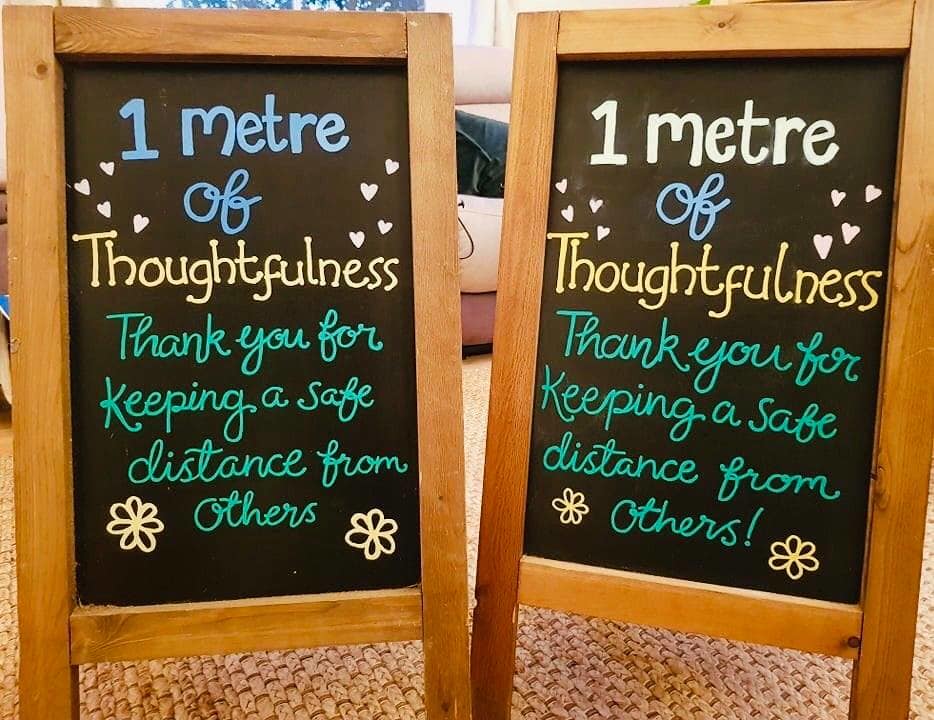 1 metre
of
Thoughtfulness
Thank you for
Keeping a safe
distance from
Others
1 metre
of
Thoughtfulness
Thank you for
Keeping a Safe
distance from
Others!